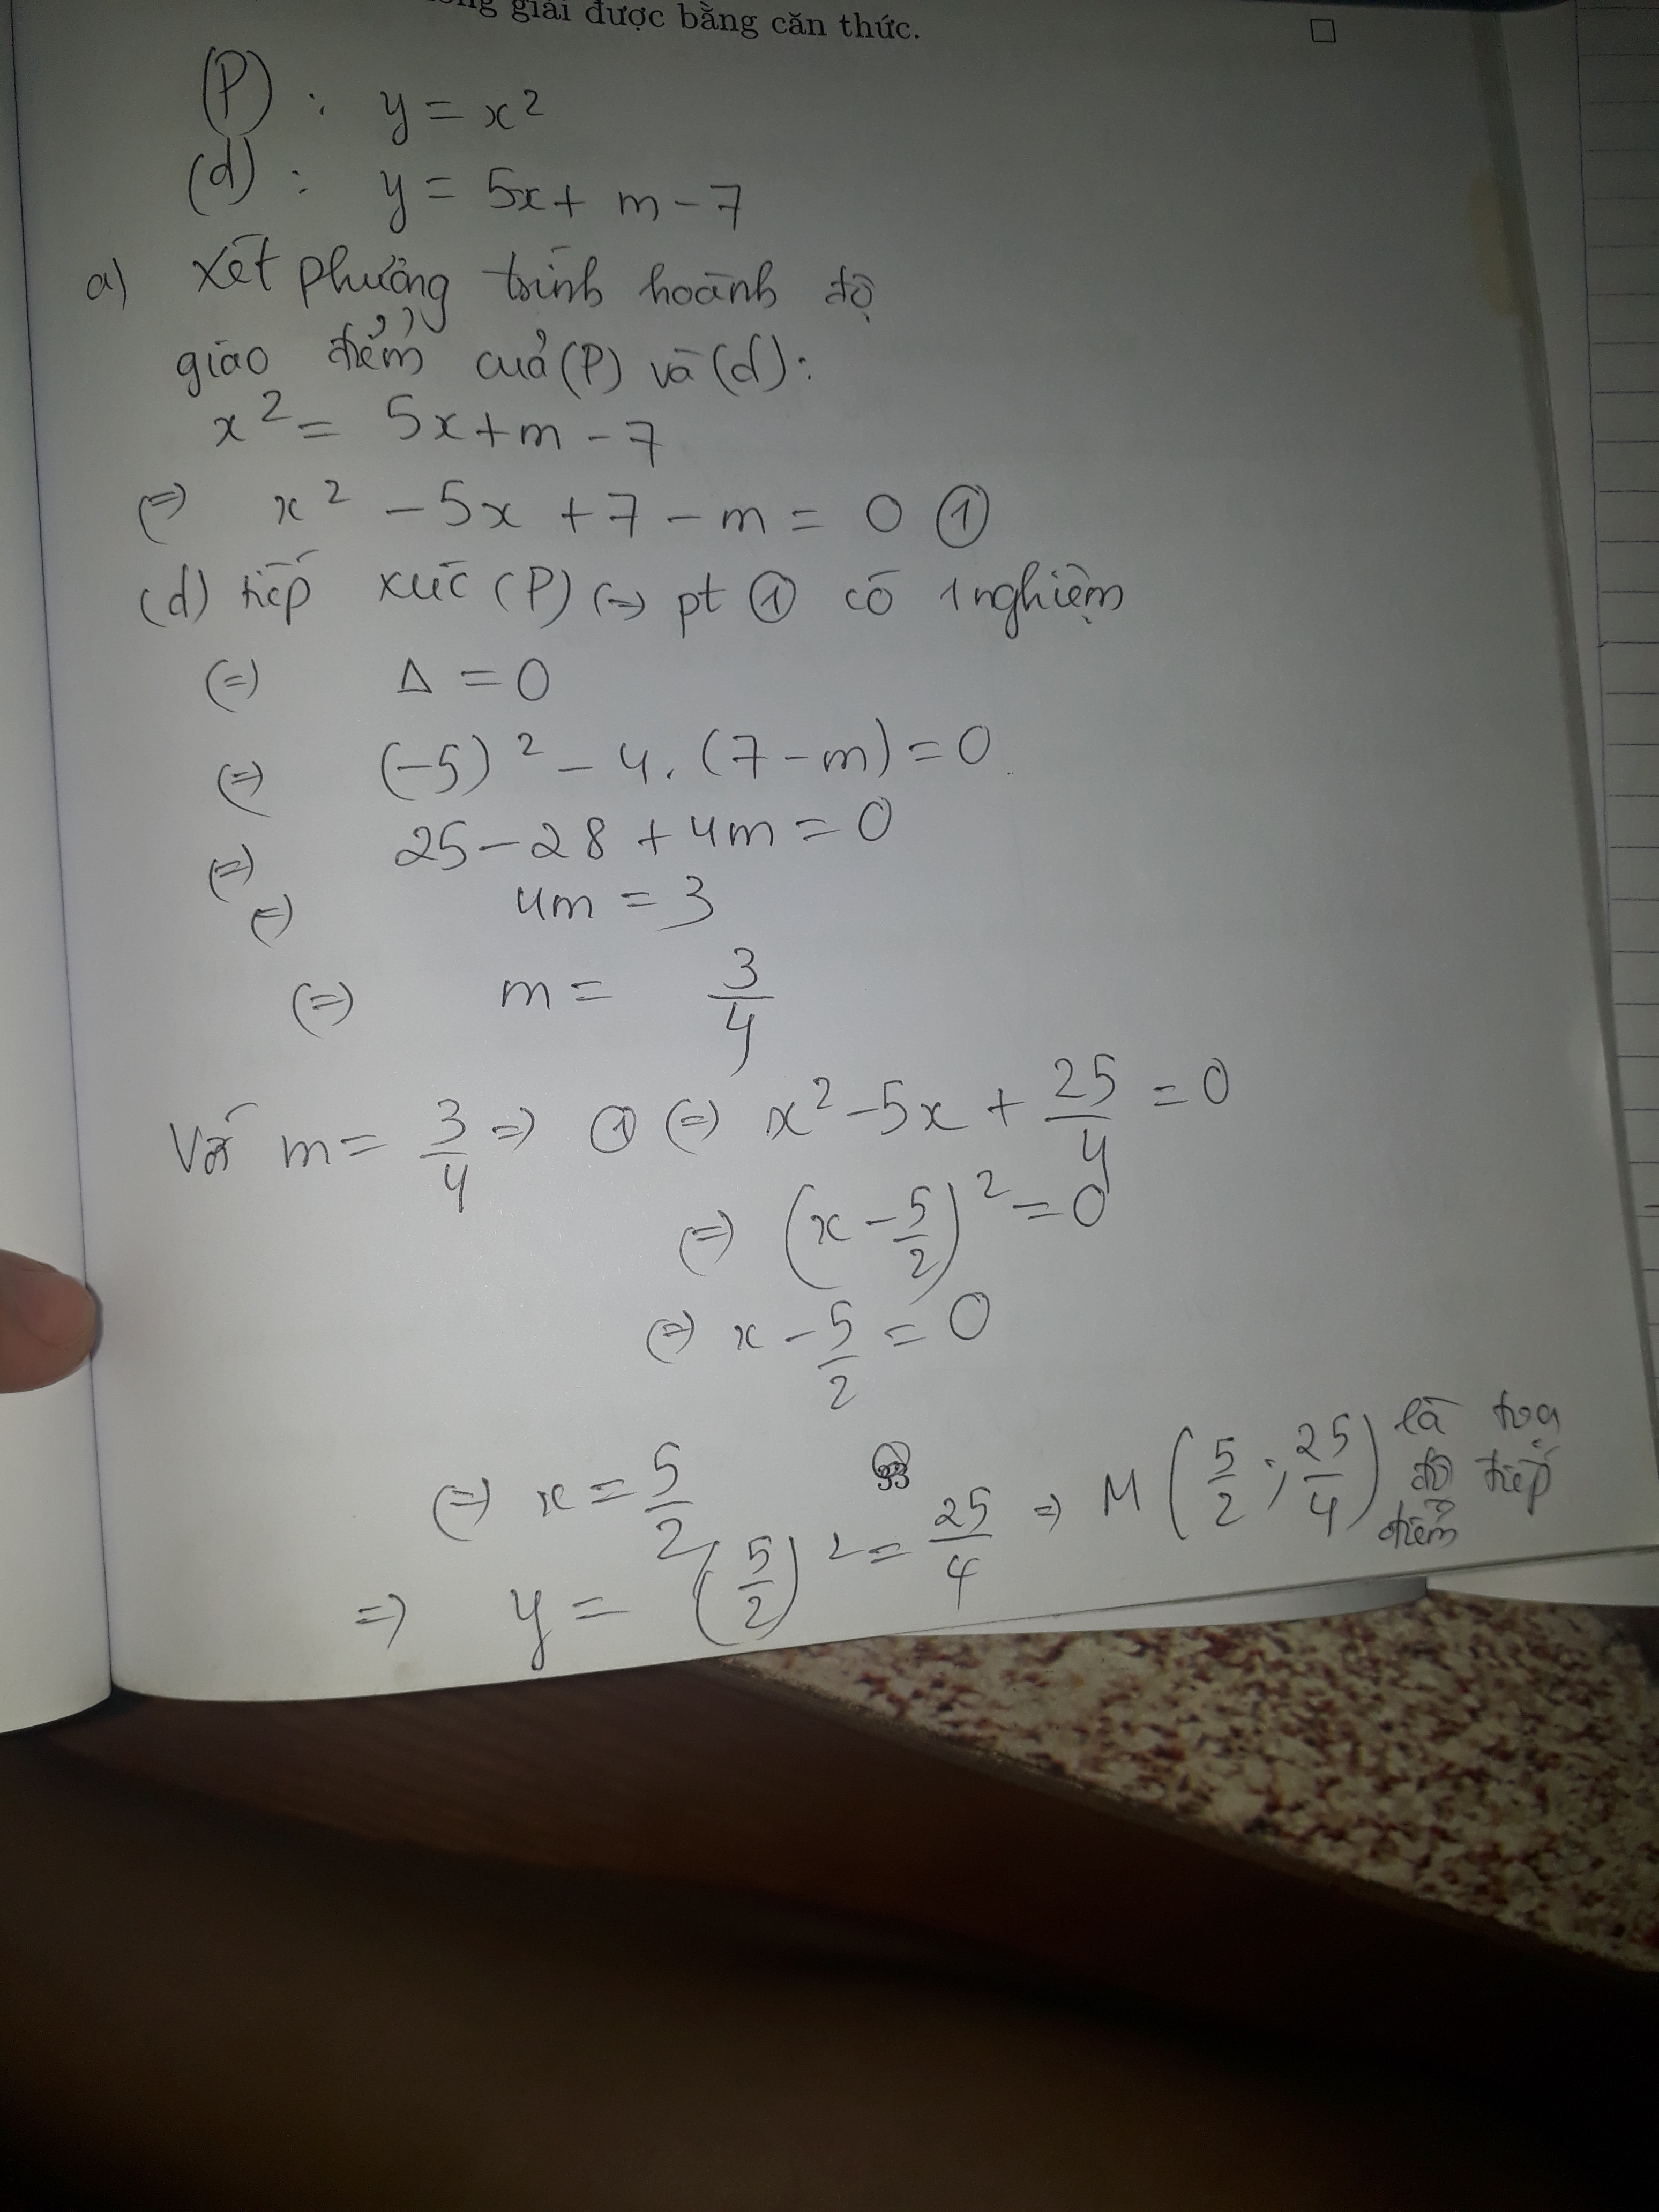 giải được bằng căn thức. □
(P) : y = x²
(d) : y = 5x + m - 7
a) Xét phương trình hoành độ
giao điểm của (P) và (d):
x² = 5x + m - 7
(=) x² - 5x + 7 - m = 0 ①
(d) tiếp xúc (P) (=) pt ① có 1 nghiệm
(=) Δ = 0
(=) (-5)² - 4. (7 - m) = 0
(=) 25 - 28 + 4m = 0
(=) 4m = 3
(=) m = 3/4
Với m = 3/4 => ① (=) x² - 5x + 25/4 = 0
(=) (x - 5/2)² = 0
(=) x - 5/2 = 0
(=) x = 5/2
=> y = (5/2)² = 25/4 => M (5/2 ; 25/4) là tọa
độ tiếp
điểm